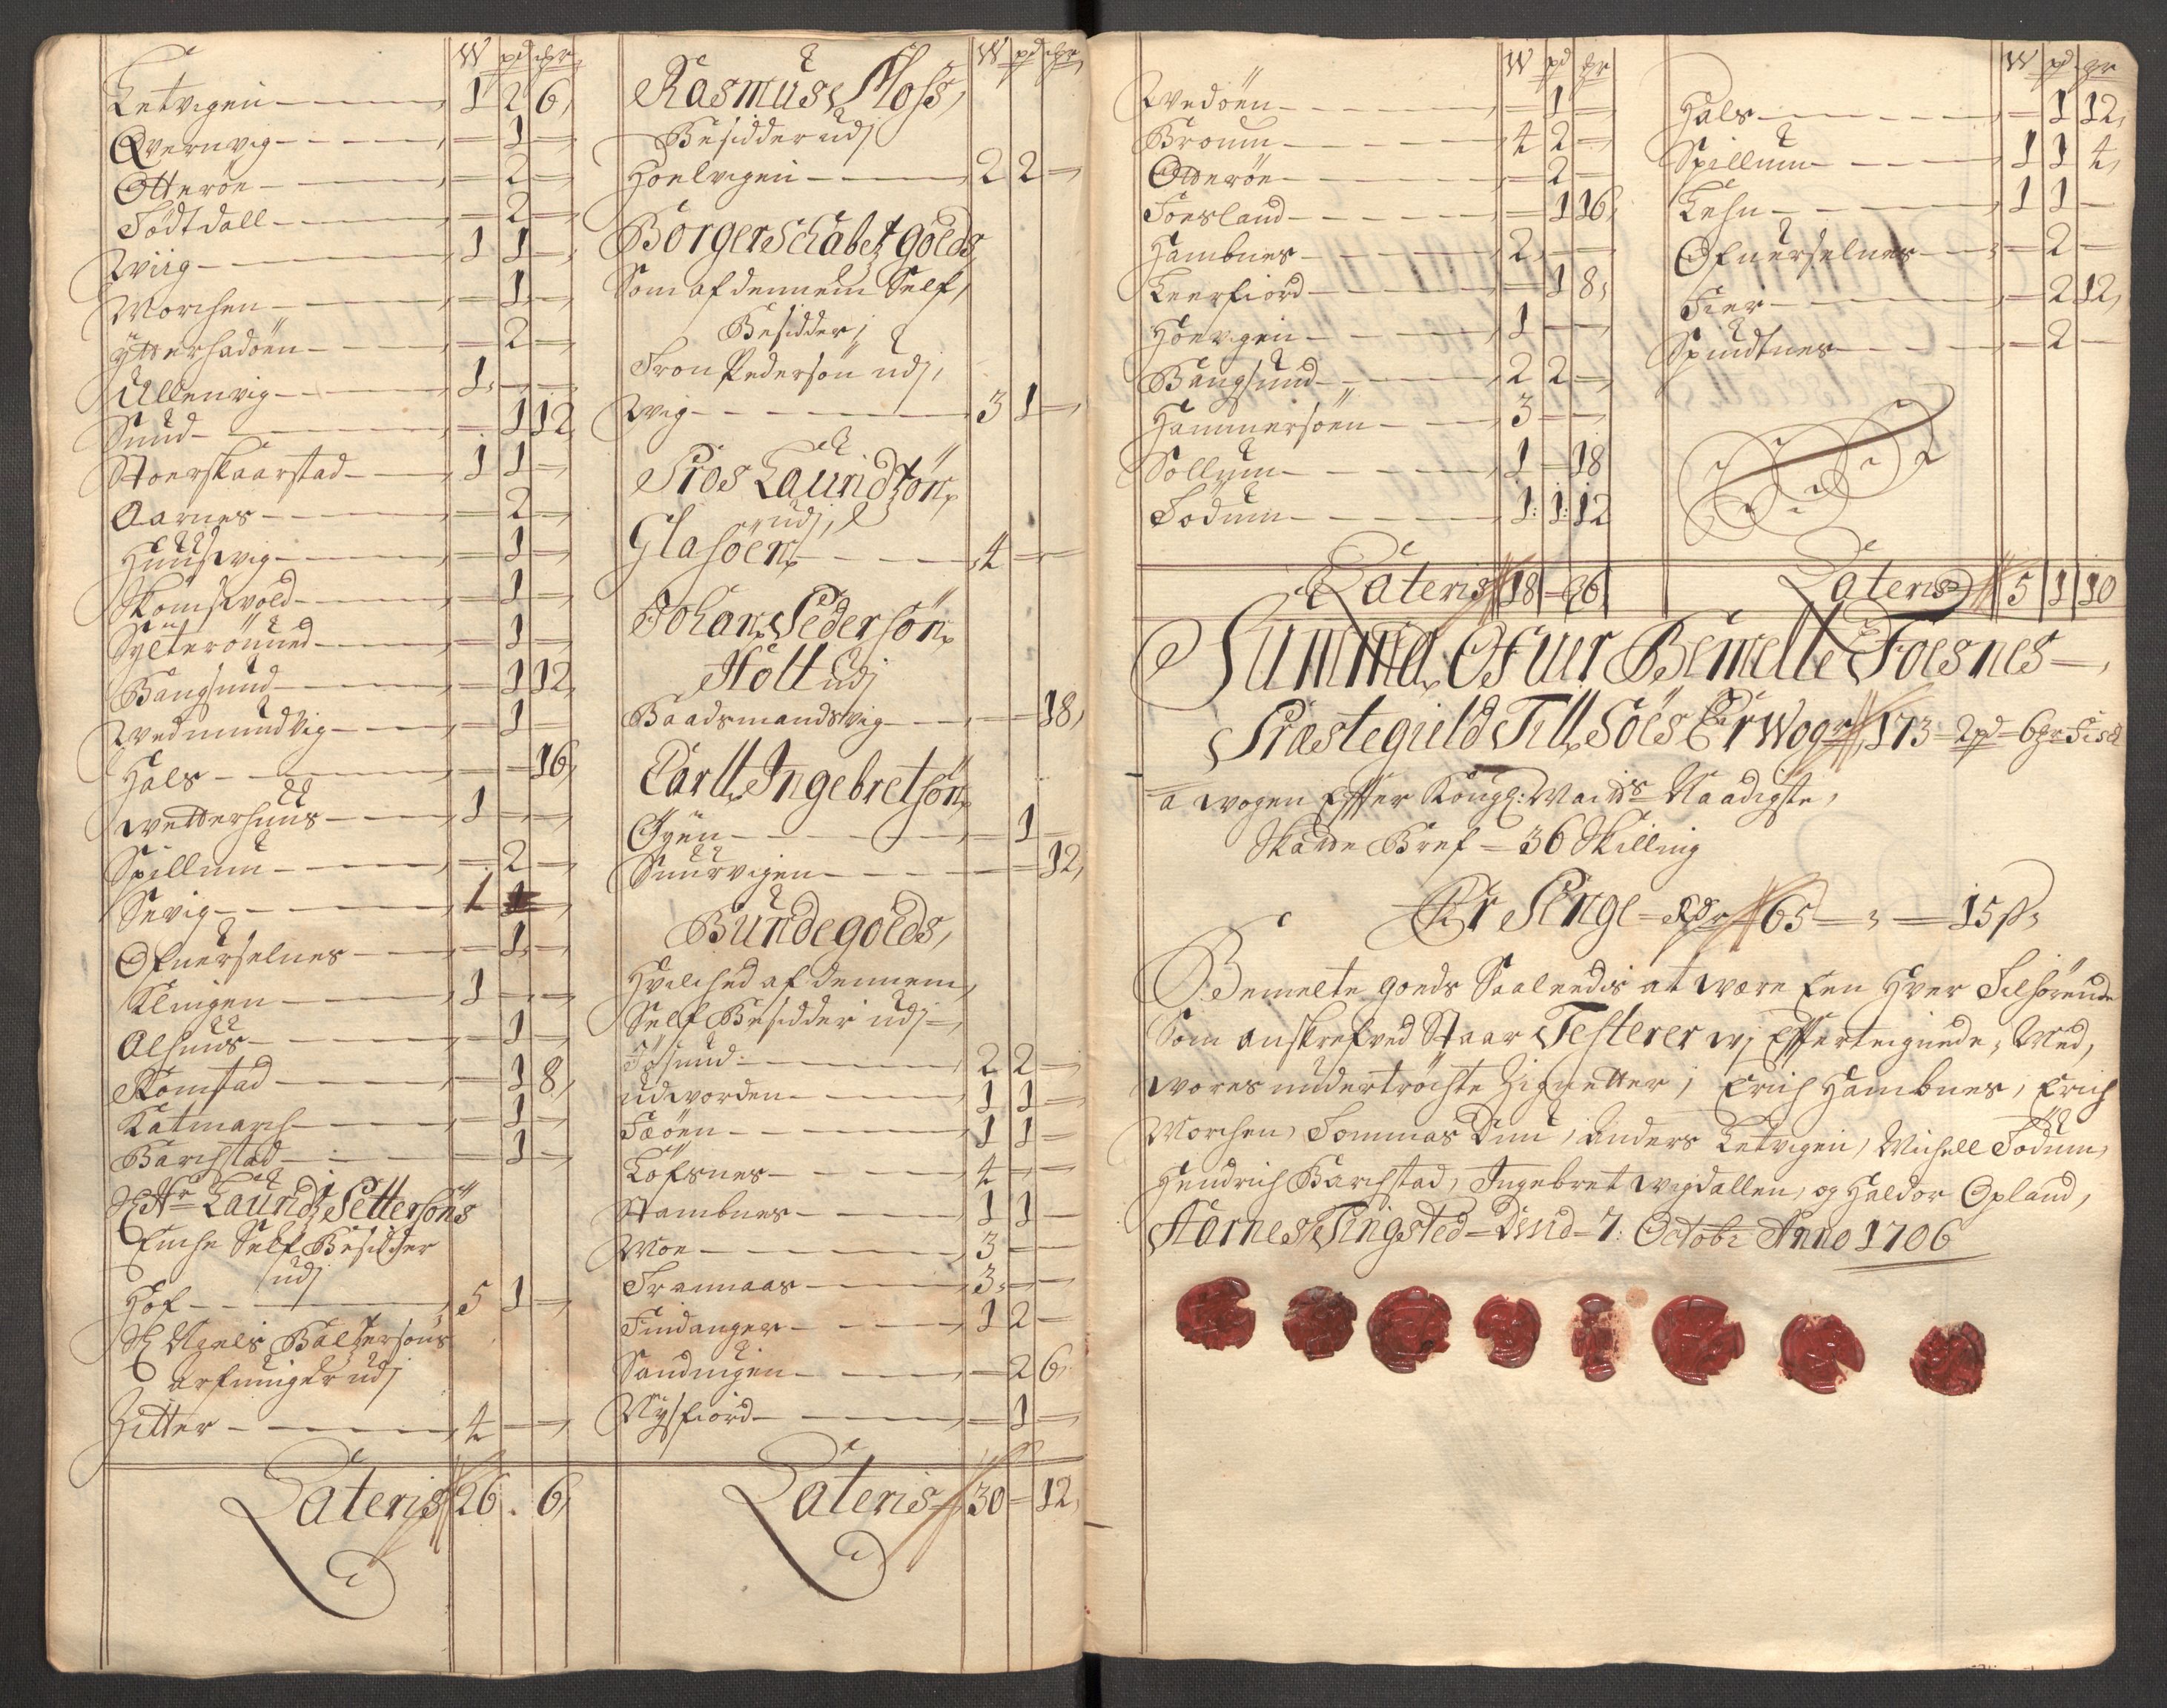 W pd gr
Letvigen 1 2 6
Qvernvig – 1 –
Otteröe – 2 –
Födtdall – 2 –
Wiig 1 1 –
Morchen – 1 –
Ytterhadöen – 2 –
Ullenvig 1 – –
Sund – 1 12
Stoerskaarstad 1 1 –
Aarnes – 2 –
Huusvig – 1 –
Skomsvold – 1 –
Sylterönued – 1 –
Bangsund – 1 12
Wedmundvig – 1 –
Hals – – 16
Wetterhuus 1 – –
Spillum – 2 –
Sevig 1 1 –
Ofuerselnes – 1 –
Klingen 1 – –
Alhuus – 1 –
Romstad – 1 8
Katmarch – 1 –
Barchstad – 1 –
Sl Hr Lauridz Pettersöns
Enche Self Besidder
udj
Hof 5 1 –
Sl Niels Baltzersöns
arfuinger udj
Zitter 4 – –
Lateris 26 . 6
W pd gr
Rasmus Moss,
Besidder udj
Hoelvigen 2 2 –
Borgerschabetz goeds
Som af dennem Self,
Besidder,
Tron Pedersön udj,
Wiig 3 1 –
Pros Lauridzön
udj,
Glasöen 4 – –
Johan Pedersön
Holt udj
Baadsmandsvig – – 18
Carll Ingebretsön
Öyen – 1 –
Suurvigen – – 12
Bundegoeds,
Hvilched af dennem,
Self Besidder udj
Tösund 2 2 –
udvorden 1 1 –
Fæöen 1 1 –
Lofsnes 4 – –
Stambnes 1 1 –
Moe 3 – –
Trannaas 3 – –
Findanger 1 2 –
Sandvigen – 2 6
Nysfiord – 1 –
Lateris 30 – 12
W pd gr
Wedöen – 1 –
Broum 4 2 –
Otteröe – 2 –
Foesland – 1 16
Hambnes 2 – –
Leerfiord – 1 8
Hoevigen 1 – –
Bangsund 2 2 –
Hammersöen 3 – –
Sollum 1 – 18
Födum 1 1 12
Lateris 18 – 6
W pd gr
Hals – 1 12
Spillum 1 1 4
Lehn 1 1 –
Ofuerselnes – 2 –
Fier – 2 12
Spindtnes – 2 –
Lateris 5 1 10
Summa Ofuer Bemelte Foesnes
Præstegield Till Söes Er Wogr 173 – 2 pd – 6 gr Fisch
a wogen Effter Kongl: Maitts Naadigste,
Skatte Bref = 36 Skilling
Er Penge – Rdr 65 – 3 – 15 ß
Bemelte goeds Saaleedis at være Een Hver Tilhörende
Som anskrefved Staar Testerer vj Effterteignede, Med,
vores undertröchte Zignetter, Erich Hambnes, Erich
Morchen, Tommas Duu, Anders Letvigen, Michell Födum,
Hendrich Barchstad, Ingebret Wegdallen, og Haldor Opland,
Aarnes Tingsted – Dend – 7: Octobr Anno 1706